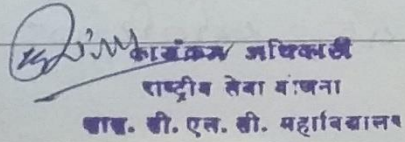 कार्यक्रम अधिकारी
राष्ट्रीय सेवा योजना
शास. बी. एल. सी. महाविद्यालय